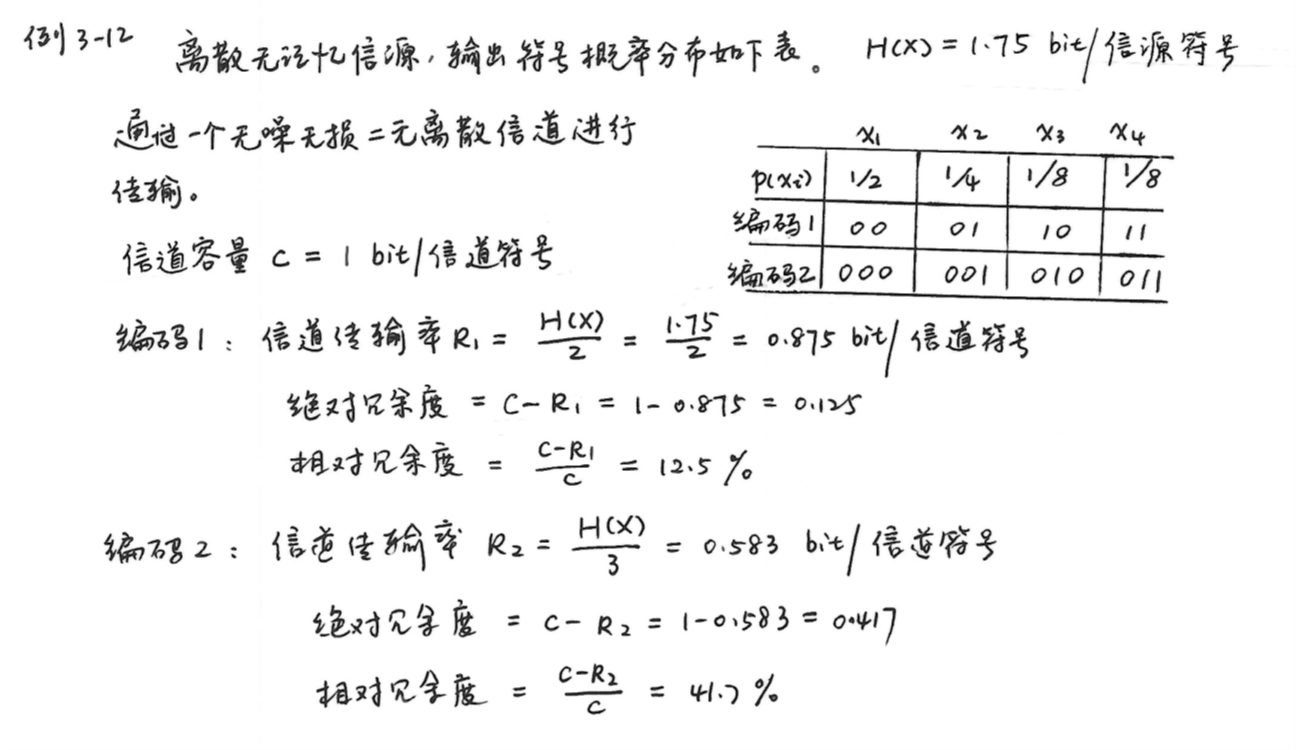 例3-12 离散无记忆信源,输出符号概率分布如下表。 H(X) = 1.75 bit/信源符号
通过一个无噪无损二元离散信道进行
传输。
x1 x2 x3 x4
p(xi) 1/2 1/4 1/8 1/8
编码1 00 01 10 11
编码2 000 001 010 011
信道容量 C = 1 bit/信道符号
编码1: 信道传输率 R1 = H(X)/2 = 1.75/2 = 0.875 bit/信道符号
绝对冗余度 = C-R1 = 1-0.875 = 0.125
相对冗余度 = C-R1/C = 12.5%
编码2: 信道传输率 R2 = H(X)/3 = 0.583 bit/信道符号
绝对冗余度 = C-R2 = 1-0.583 = 0.417
相对冗余度 = C-R2/C = 41.7%